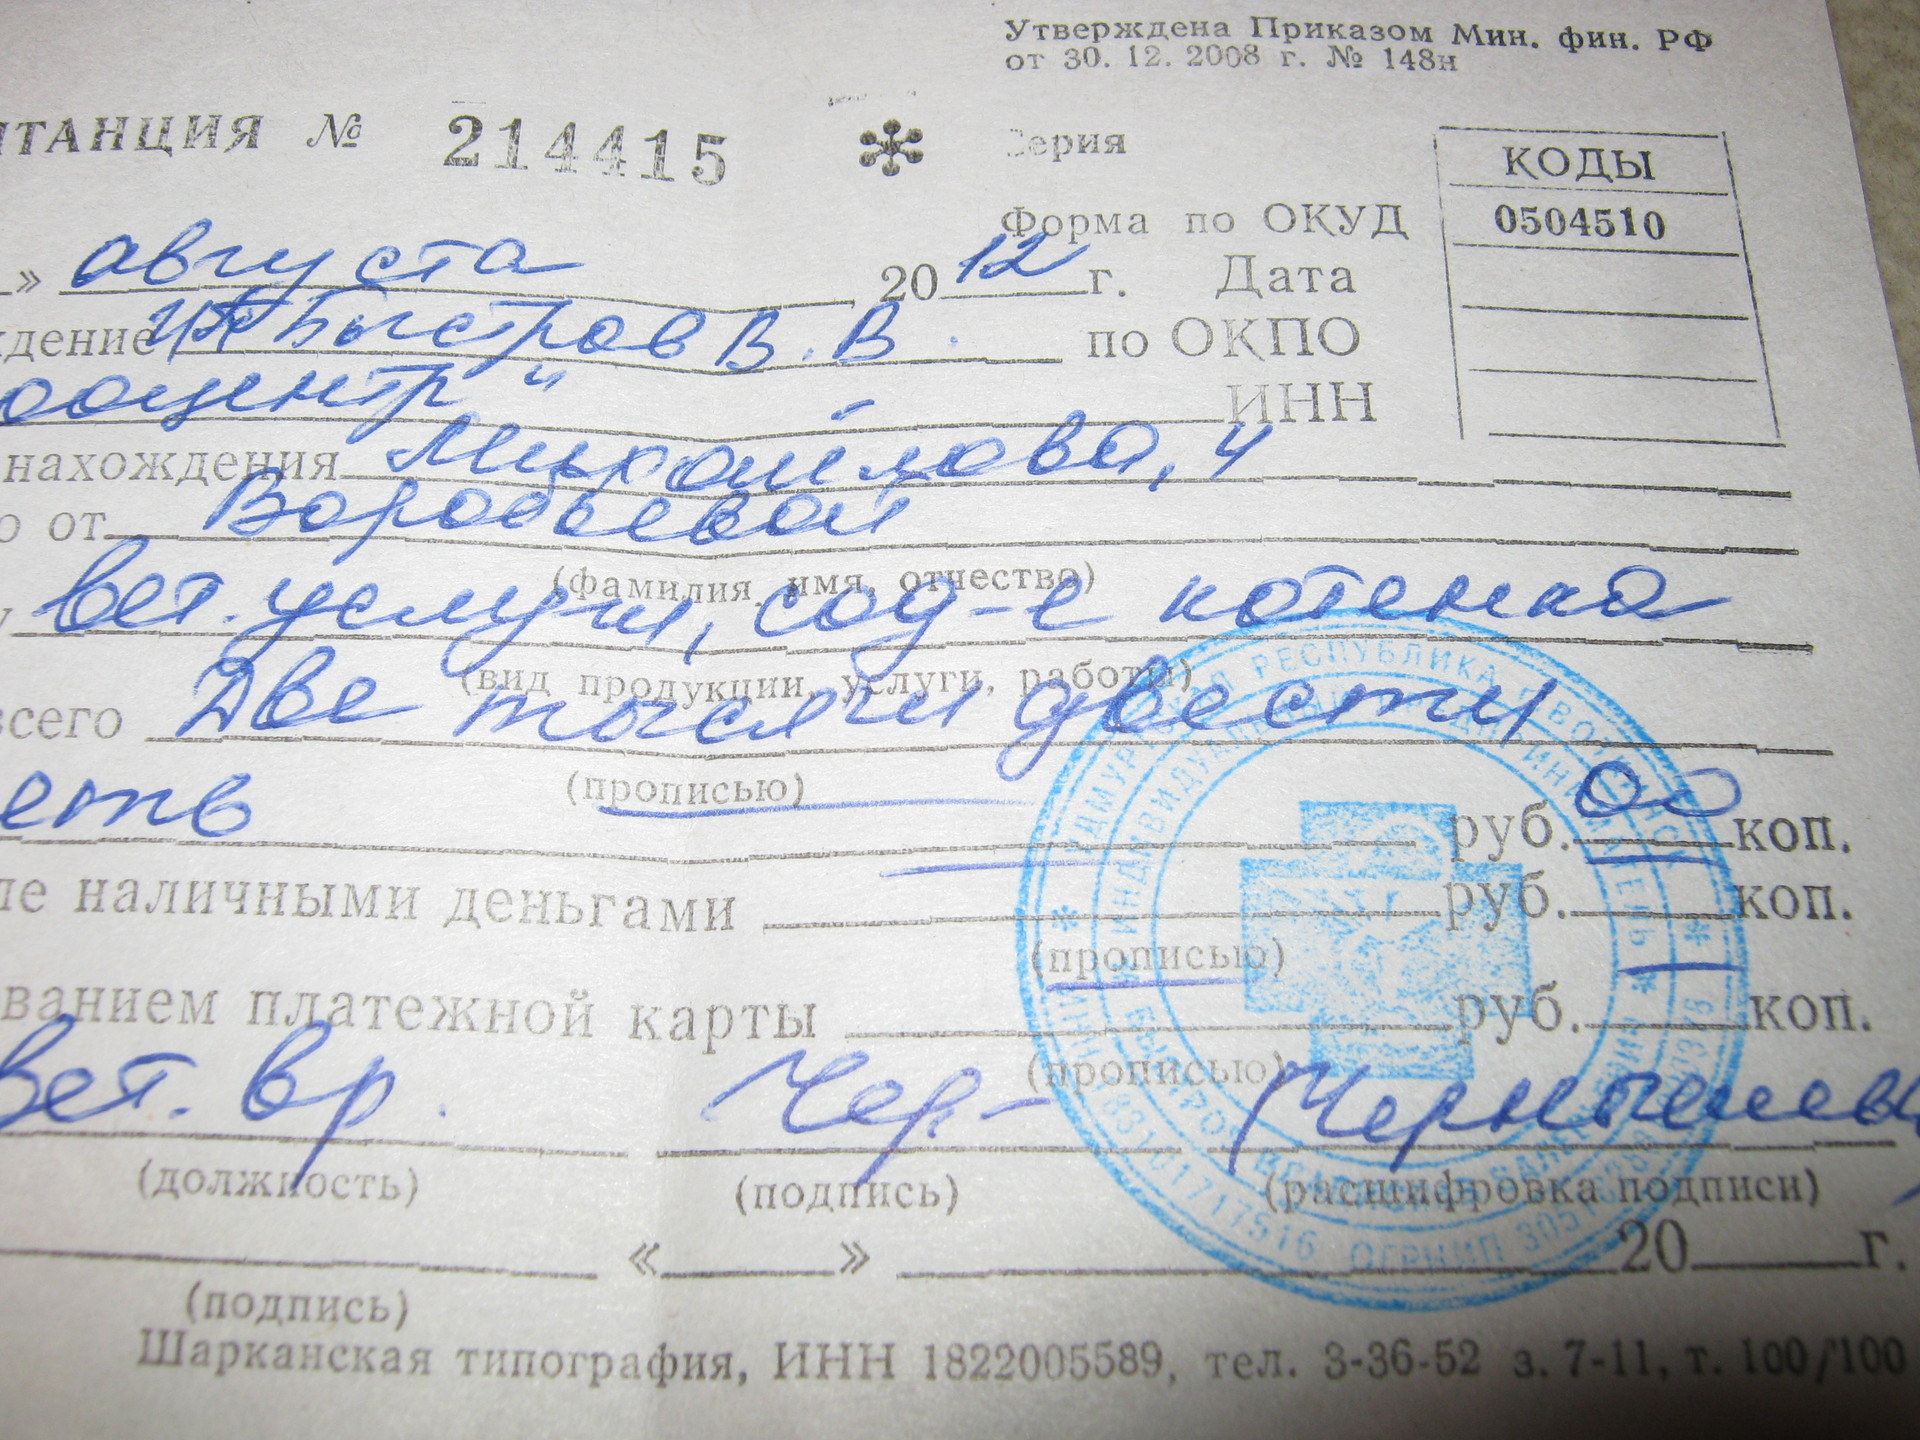 Утверждена Приказом Мин. фин. РФ
от 30. 12. 2008 г. № 148н
ИТАНЦИЯ № 214415 * Серия
КОДЫ
Форма по ОКУД 0504510
» августа 2012 г. Дата
ждение ИП Быстров В. В. по ОКПО
ооцентр" ИНН
нахождения Михайлова, 4
о от Воробьевой
(фамилия, имя, отчество)
у вет. услуги, сод-е котенка
(вид продукции, услуги, работы)
всего Две тысячи двести
(прописью)
еть руб. 00 коп.
ле наличными деньгами руб. коп.
(прописью)
ванием платежной карты руб. коп.
(прописью)
Вет. вр. Чер- Чернышевы
(должность) (подпись) (расшифровка подписи)
« » 20 г.
(подпись)
Шарканская типография, ИНН 1822005589, тел. 3-36-52 з. 7-11, т. 100/100
УДМУРТСКАЯ РЕСПУБЛИКА Г. ВОТКИНСК
ИНДИВИДУАЛЬНЫЙ ПРЕДПРИНИМАТЕЛЬ
ОГРНИП